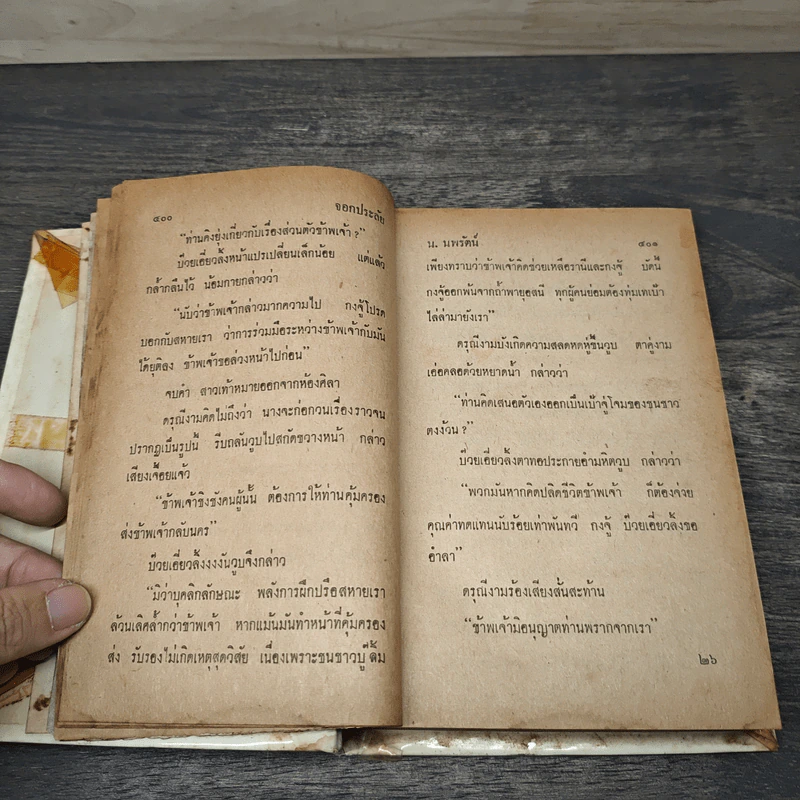 ๔๐๐ จอกประลัย
“ท่านคิงยุ่งเกี่ยวกับเรื่องส่วนตัวข้าพเจ้า ?”
ป๊วยเอี่ยวล้งหน้าแปรเปลี่ยนเล็กน้อย แต่แล้ว
กล้ำกลืนไว้ น้อมกายกล่าวว่า
“นับว่าข้าพเจ้ากล่าวมากความไป กงจู้โปรด
บอกกับสหายเรา ว่าการร่วมมือระหว่างข้าพเจ้ากับมัน
ได้ยุติลง ข้าพเจ้าขอล่วงหน้าไปก่อน”
จบคำ สาวเท้าหมายออกจากห้องศิลา
ดรุณีงามคิดไม่ถึงว่า นางจะก่อกวนเรื่องราวจน
ปรากฏเป็นรูปนี้ รีบถลันวูบไปสกัดขวางหน้า กล่าว
เสียงเจื้อยแจ้ว
“ข้าพเจ้าชิงชังคนผู้นั้น ต้องการให้ท่านคุ้มครอง
ส่งข้าพเจ้ากลับนคร”
ป๊วยเอี่ยวล้งงงงันวูบจึงกล่าว
“มิว่าบุคลิกลักษณะ พลังการฝึกปรือสหายเรา
ล้วนเลิศล้ำกว่าข้าพเจ้า หากแม้นมันทำหน้าที่คุ้มครอง
ส่ง รับรองไม่เกิดเหตุสุดวิสัย เนื่องเพราะชนชาวบู๊ลิ้ม
น. นพรัตน์ ๔๐๑
เพียงทราบว่าข้าพเจ้าคิดช่วยเหลือรานีและกงจู้ บัดนี้
กงจู้ออกพ้นจากถ้ำพายุอสนี ทุกผู้คนย่อมต้องทุ่มเทเป้า
ไล่ล่ามายังเรา”
ดรุณีงามบังเกิดความสลดหดหู่ขึ้นวูบ ตาคู่งาม
เอ่อคลอด้วยหยาดน้ำ กล่าวว่า
“ท่านคิดเสนอตัวเองออกเป็นเป้าจู่โจมของชนชาว
ตงง้วน ?”
ป๊วยเอี่ยวล้งตาทอประกายอำมหิตวูบ กล่าวว่า
“พวกมันหากคิดปลิดชีวิตข้าพเจ้า ก็ต้องจ่าย
คุณค่าทดแทนนับร้อยเท่าพันทวี กงจู้ ป๊วยเอี่ยวล้งขอ
อำลา”
ดรุณีงามร้องเสียงสั่นสะท้าน
“ข้าพเจ้ามิอนุญาตท่านพรากจากเรา”
๒๖